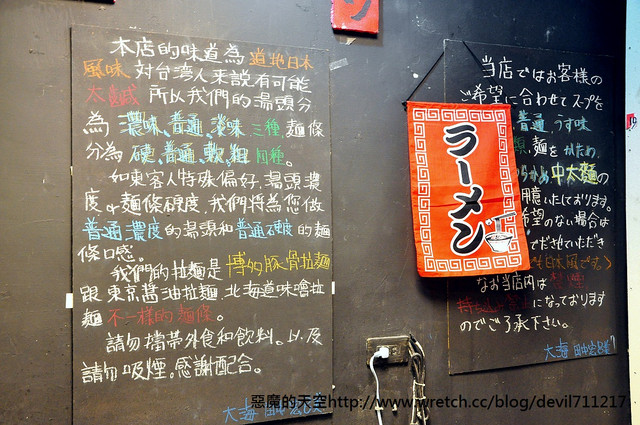 本店的味道為 道地日本
風味 対台湾人來說有可能
太鹹 所以我們的湯頭分
為 濃味、普通、淡味 三種 麵條
分為 硬、普通、軟、粗 四種。
如果客人特殊偏好,湯頭濃
度、麵條硬度,我們將為您做
普通濃度的湯頭和普通硬度的麵
條口感。
我們的拉麵是 博多豚骨拉麵
跟 東京醬油拉麵,北海道味噌拉
麵 不一樣的麵條。
請勿攜帶外食和飲料。以及
請勿吸煙。感謝配合。
大海
ラーメン
当店ではお客様の
ご希望に合わせてスープを
普通 うす味
麺を かため
中太麺の
用意いたしております。
希望のない場合は
でださせていただき
も日本風です)
なお当店内は
持ち込み になっております
のでご了承下さい。
大海
惡魔的天空http://www.wretch.cc/blog/devil711217